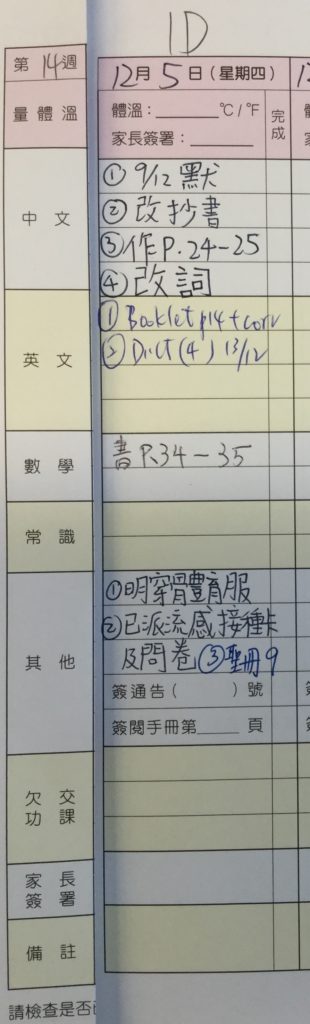 1D
第14週
12月5日(星期四)
量體溫
體溫：______℃/℉
完成
家長簽署：______
中文
① 9/12 默
② 改抄書
③ 作P.24-25
④ 改詞
英文
① Booklet p14 + corr
② Dict (4) 13/12
數學
書P.34-35
常識
其他
① 明穿體育服
② 已派流感接種卡
及問卷 ③聖冊9
簽通告( )號
簽閱手冊第____頁
欠交
功課
家長
簽署
備註
請檢查是否已